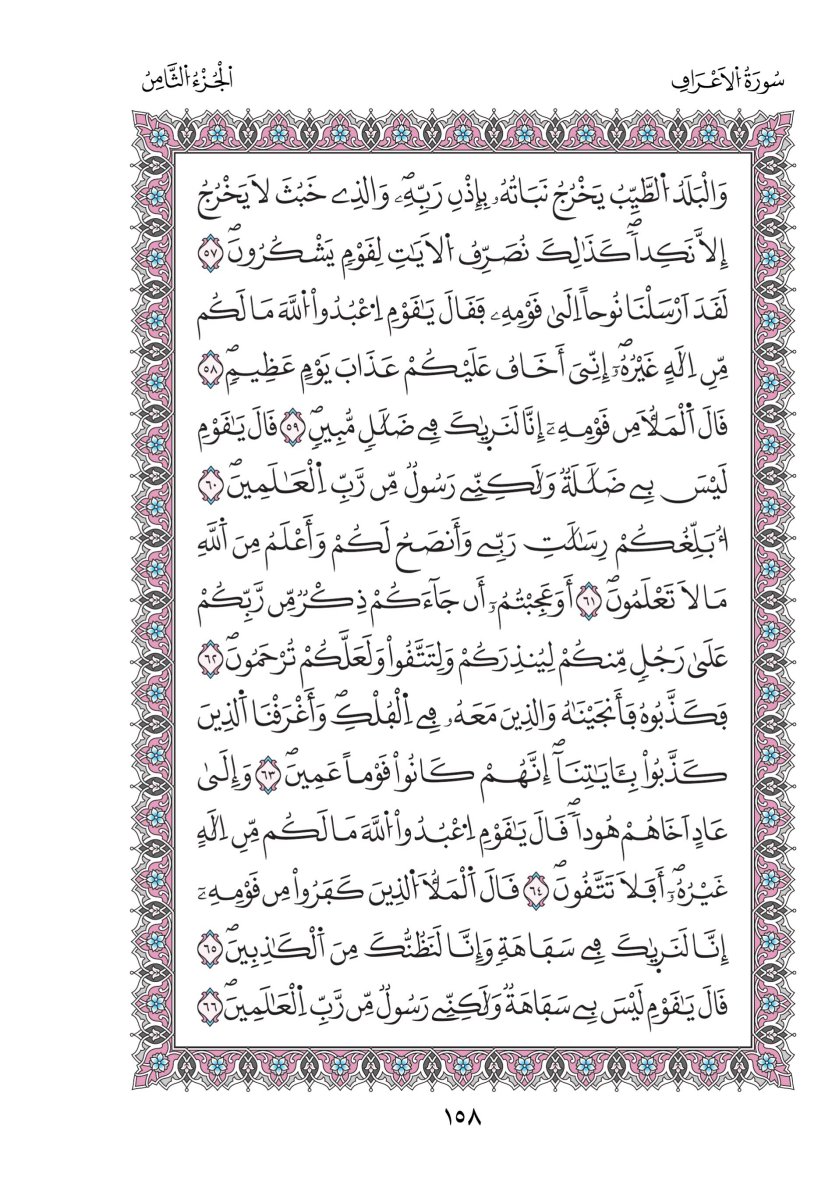 سُورَةُ اُ۬لَاعْرَافِ
اَ۬لْجُزْءُ اُ۬لثَّامِنُ
وَالْبَلَدُ اُ۬لطَّيِّبُ يَخْرُجُ نَبَاتُهُۥ بِإِذْنِ رَبِّهِۦۖ وَالذِے خَبُثَ لَا يَخْرُجُ
إِلَّا نَكِداٗۖ كَذَٰلِكَ نُصَرِّفُ اُ۬لَايَٰتِ لِقَوْمٖ يَشْكُرُونَۖ ٥٧
لَقَدَ اَرْسَلْنَا نُوحاً اِلَىٰ قَوْمِهِۦ فَقَالَ يَٰقَوْمِ اِ۟عْبُدُوا۟ اُ۬للَّهَ مَا لَكُم
مِّنِ اِلَٰهٍ غَيْرُهُۥٓۖ إِنِّيَ أَخَافُ عَلَيْكُمْ عَذَابَ يَوْمٍ عَظِيمٖۖ ٥٨
قَالَ اَ۬لْمَلَأُ مِن قَوْمِهِۦٓ إِنَّا لَنَر۪يٰكَ فِے ضَلَٰلٖ مُّبِينٖۖ ٥٩ قَالَ يَٰقَوْمِ
لَيْسَ بِے ضَلَٰلَةٞ وَلَٰكِنِّے رَسُولٞ مِّن رَّبِّ اِ۬لْعَٰلَمِينَۖ ٦٠
أُبَلِّغُكُمْ رِسَٰلَٰتِ رَبِّے وَأَنصَحُ لَكُمْ وَأَعْلَمُ مِنَ اَ۬للَّهِ
مَا لَا تَعْلَمُونَۖ ٦١ أَوَعَجِبْتُمُۥٓ أَن جَآءَكُمْ ذِكْرٞ مِّن رَّبِّكُمْ
عَلَىٰ رَجُلٖ مِّنكُمْ لِيُنذِرَكُمْ وَلِتَتَّقُوا۟ وَلَعَلَّكُمْ تُرْحَمُونَۖ ٦٢
فَكَذَّبُوهُ فَأَنجَيْنَٰهُ وَالذِينَ مَعَهُۥ فِے اِ۬لْفُلْكِۖ وَأَغْرَقْنَا اَ۬لذِينَ
كَذَّبُوا۟ بِـَٔايَٰتِنَآۖ إِنَّهُمْ كَانُوا۟ قَوْماً عَمِينَۖ ٦٣ وَإِلَىٰ
عَادٍ اَخَاهُمْ هُوداٗۖ قَالَ يَٰقَوْمِ اِ۟عْبُدُوا۟ اُ۬للَّهَ مَا لَكُم مِّنِ اِلَٰهٍ
غَيْرُهُۥٓۖ أَفَلَا تَتَّقُونَۖ ٦٤ قَالَ اَ۬لْمَلَأُ اُ۬لذِينَ كَفَرُوا۟ مِن قَوْمِهِۦٓ
إِنَّا لَنَر۪يٰكَ فِے سَفَاهَةٖ وَإِنَّا لَنَظُنُّكَ مِنَ اَ۬لْكَٰذِبِينَۖ ٦٥
قَالَ يَٰقَوْمِ لَيْسَ بِے سَفَاهَةٞ وَلَٰكِنِّے رَسُولٞ مِّن رَّبِّ اِ۬لْعَٰلَمِينَۖ ٦٦
١٥٨